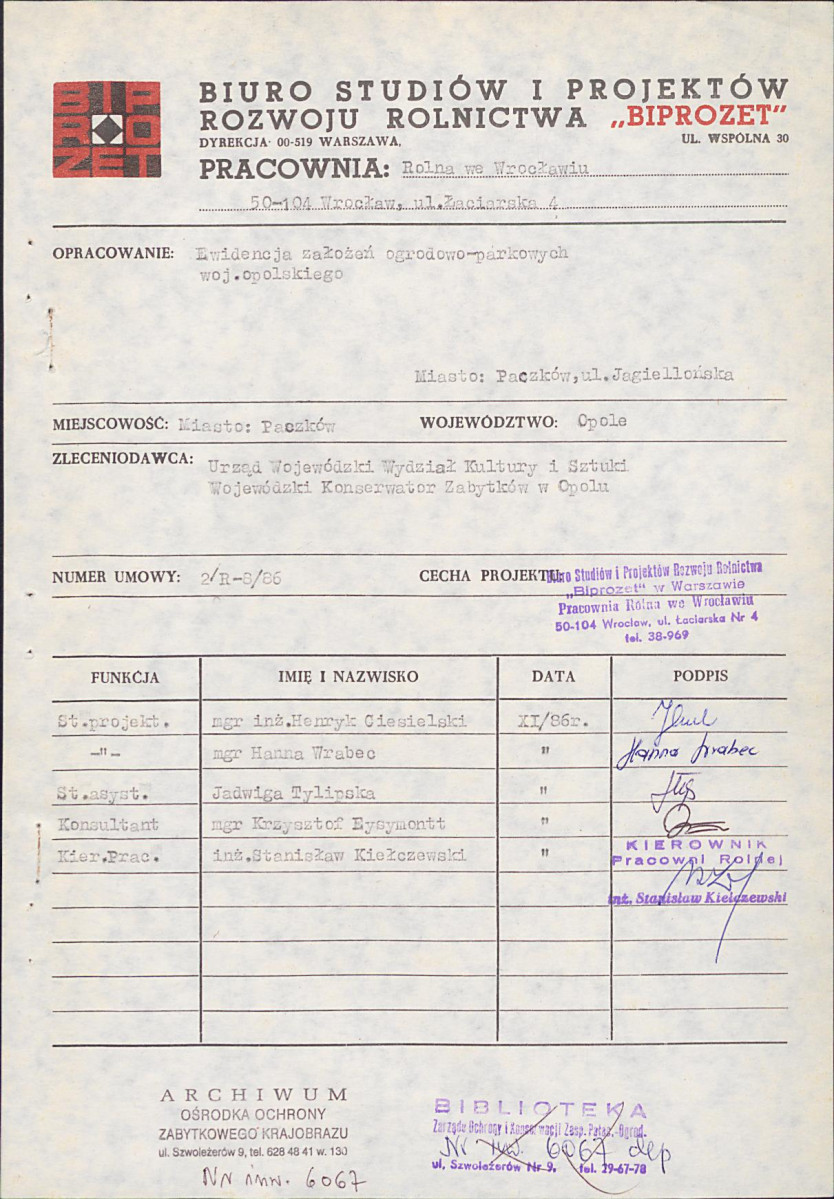 BIP
RO
ZET
BIURO STUDIÓW I PROJEKTÓW
ROZWOJU ROLNICTWA „BIPROZET”
DYREKCJA· 00-519 WARSZAWA, UL. WSPÓLNA 30
PRACOWNIA: Rolna we Wrocławiu
50-104 Wrocław, ul.Łaciarska 4
OPRACOWANIE: Ewidencja założeń ogrodowo-parkowych
woj.opolskiego
Miasto: Paczków,ul.Jagiellońska
MIEJSCOWOŚĆ: Miasto: Paczków WOJEWÓDZTWO: Opole
ZLECENIODAWCA: Urząd Wojewódzki Wydział Kultury i Sztuki
Wojewódzki Konserwator Zabytków w Opolu
NUMER UMOWY: 2/R-8/86 CECHA PROJEKTU:
Biuro Studiów i Projektów Rozwoju Rolnictwa
„Biprozet" w Warszawie
Pracownia Rolna we Wrocławiu
50-104 Wrocław, ul. Łaciarska Nr 4
tel. 38-969
FUNKCJA IMIĘ I NAZWISKO DATA PODPIS
St.projekt. mgr inż.Henryk Ciesielski XI/86r.
-"- mgr Hanna Wrabec " Hanna Wrabec
St.asyst. Jadwiga Tylipska "
Konsultant mgr Krzysztof Eysymontt "
Kier.Prac. inż.Stanisław Kiełczewski "
KIEROWNIK
Pracowni Rolnej
inż. Stanisław Kiełczewski
ARCHIWUM
OŚRODKA OCHRONY
ZABYTKOWEGO KRAJOBRAZU
ul. Szwoleżerów 9, tel. 628 48 41 w. 130
Nr inw. 6067
BIBLIOTEKA
Zarządu Ochrony i Konserwacji Zesp. Pałac.-Ogrod.
Nr inw. 6067 dep
ul. Szwoleżerów Nr 9, tel. 29-67-78